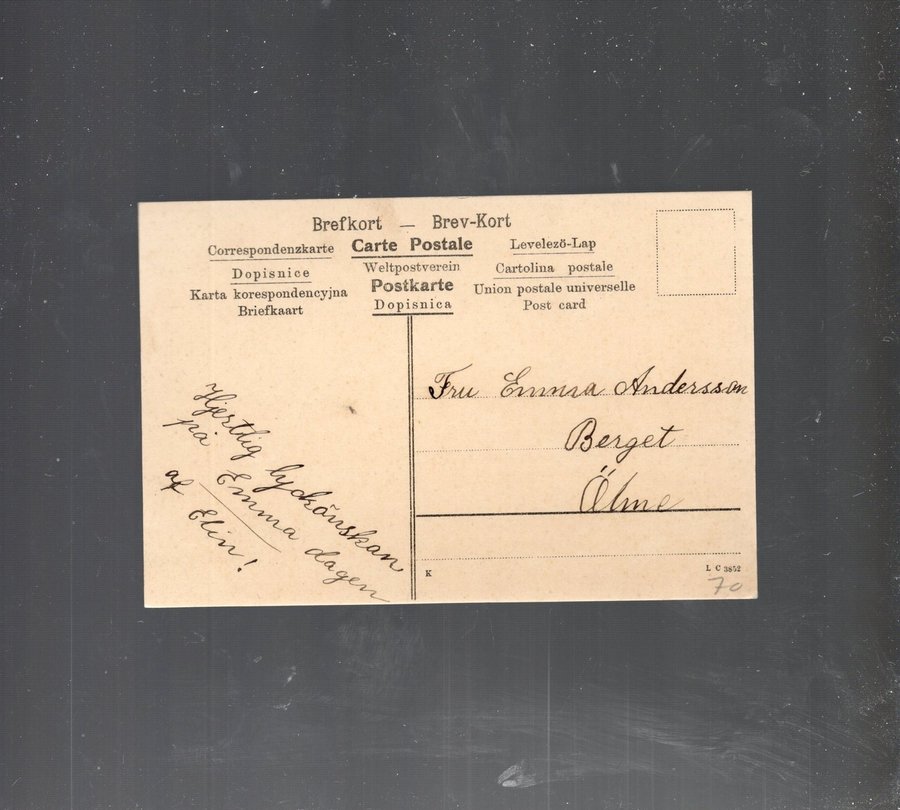 Brefkort — Brev-Kort
Correspondenzkarte Carte Postale Levelezö-Lap
Dopisnice Weltpostverein Cartolina postale
Karta korespondencyjna Postkarte Union postale universelle
Briefkaart Dopisnica Post card
Hjertlig lyckönskan
på Emma dagen
af Elin!
Fru Emma Andersson
Berget
Ölme
K
L C 3852
70